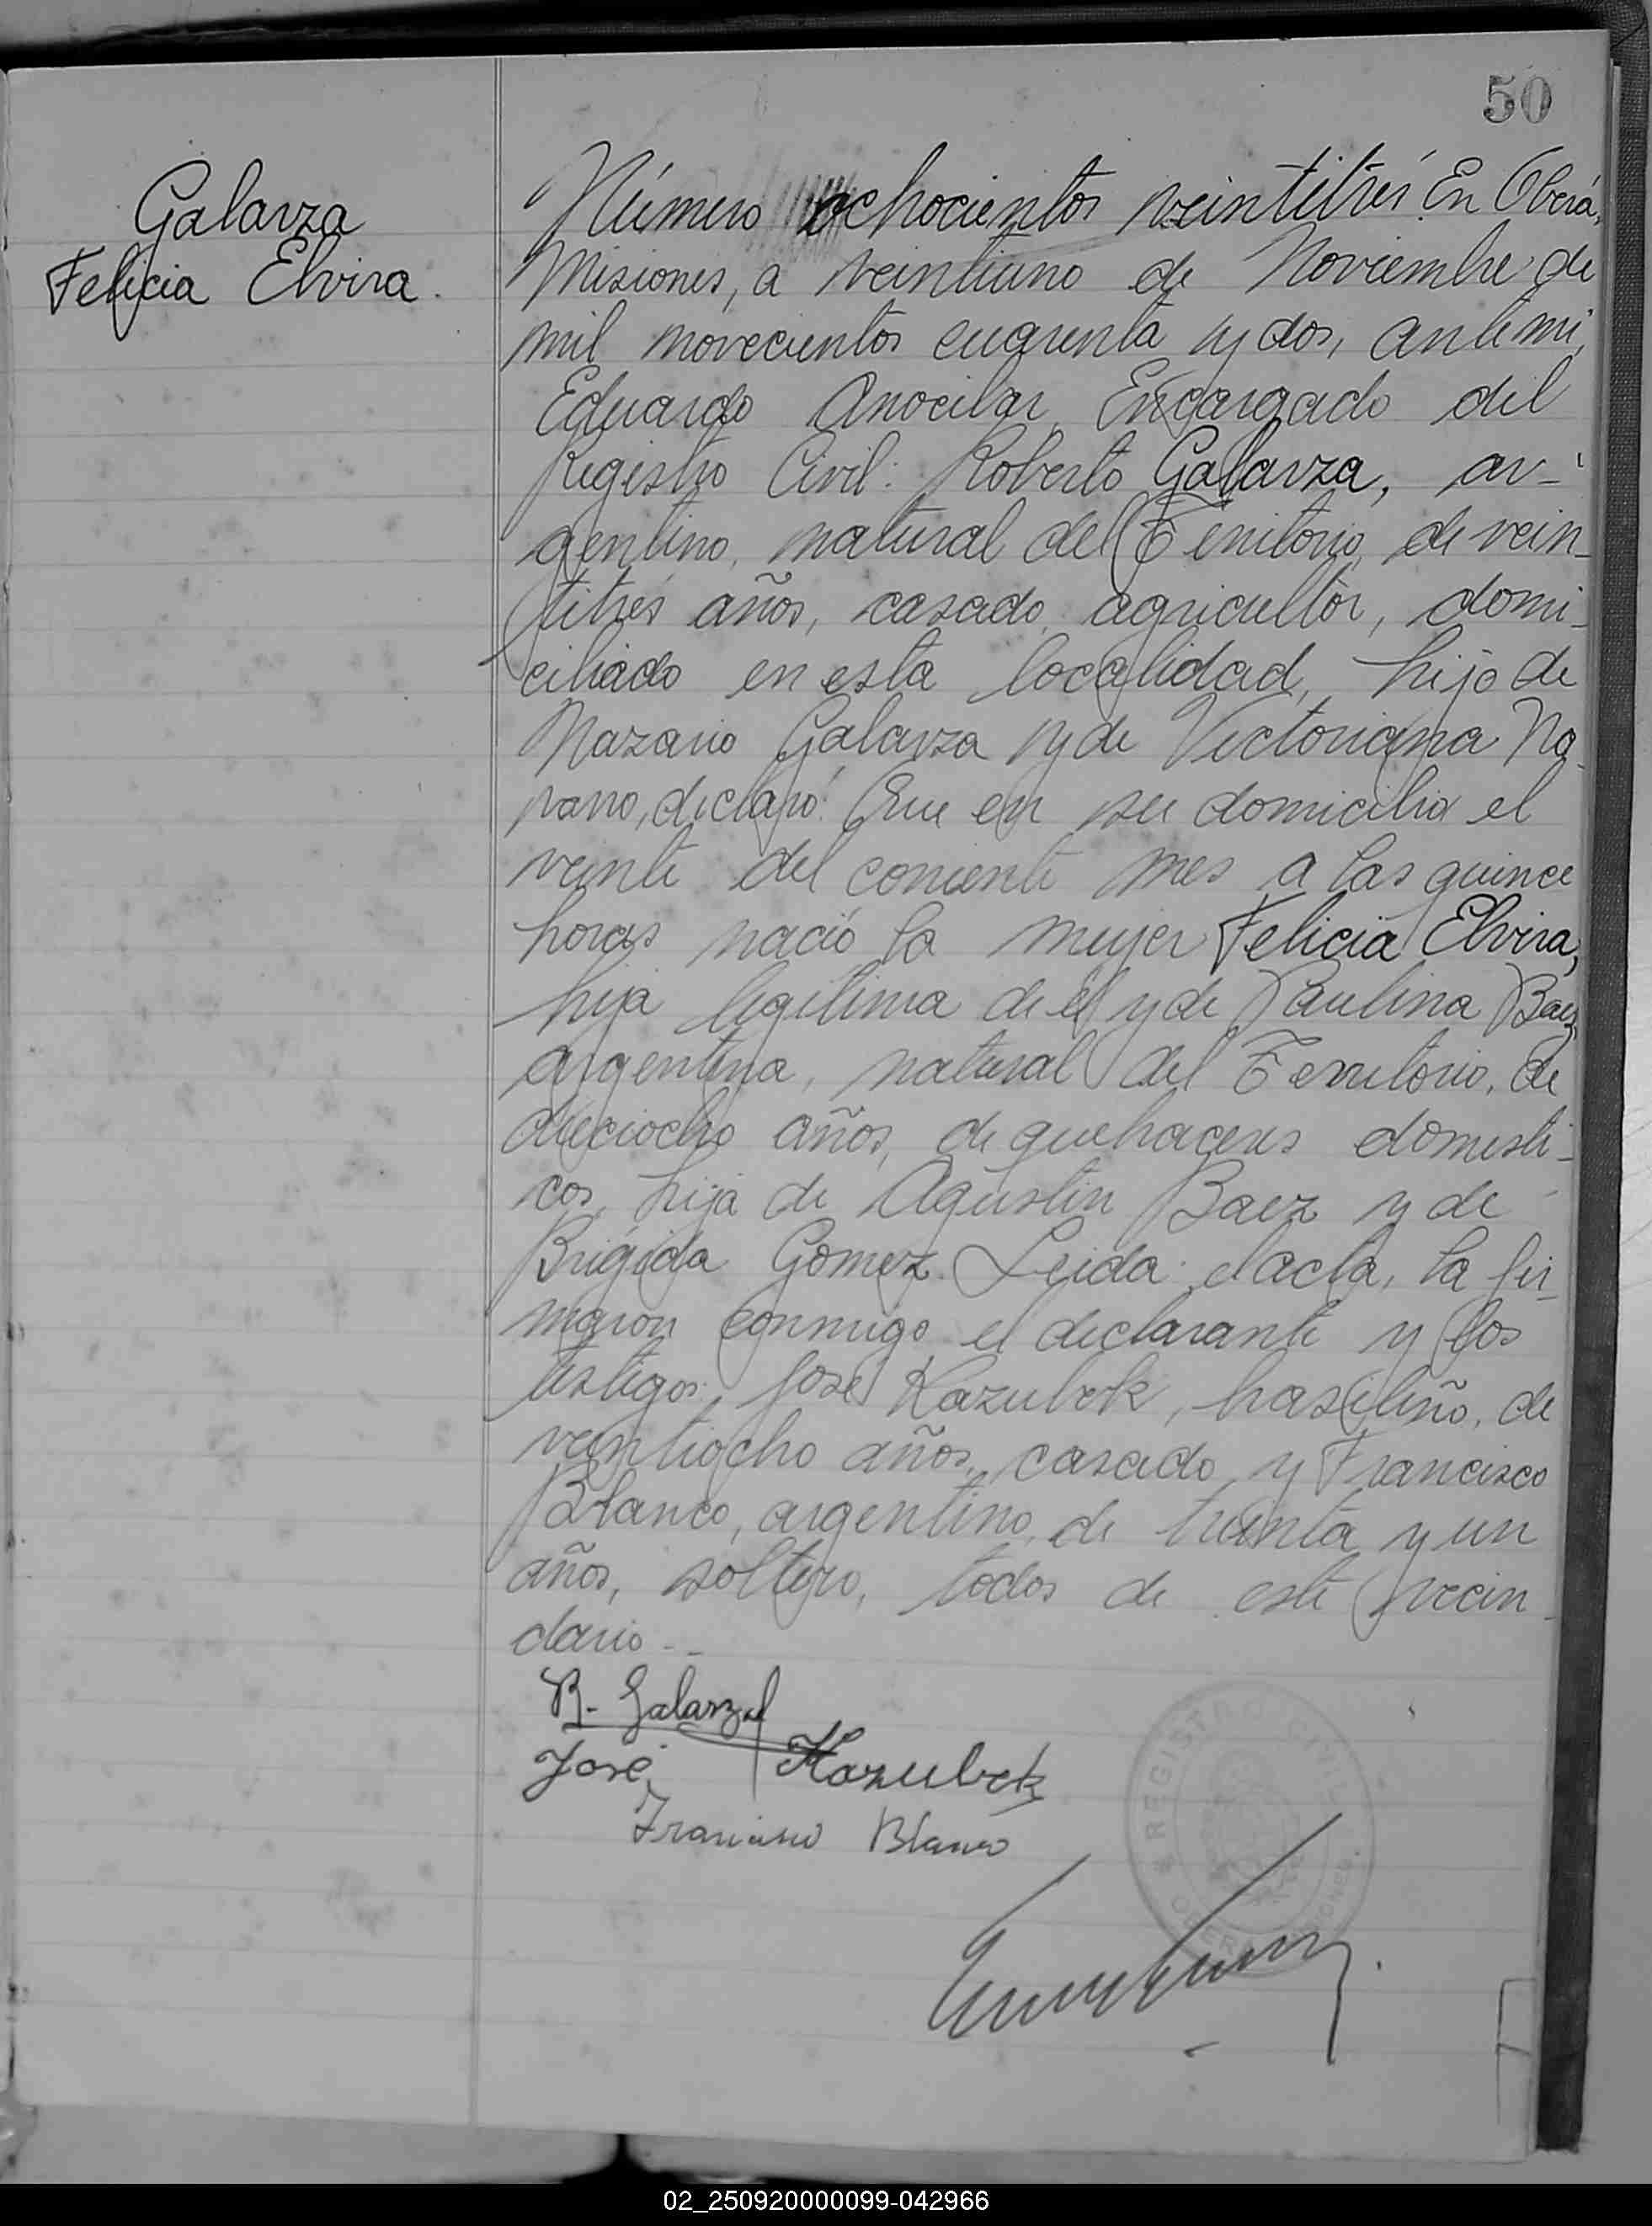 50
Galarza
Felicia Elvira.
Número ochocientos veintitrés En Oberá,
Misiones, a veintiuno de Noviembre de
mil novecientos cuarenta y dos, ante mi,
Eduardo Encargado del
Registro Civil: Roberto Galarza, ar-
gentino, natural del Territorio, de vein-
titrés años, casado, agricultor, domi-
ciliado en esta localidad, hijo de
Nazario Galarza y de Victoriana Na-
varro, declaró: Que en su domicilio el
veinte del corriente mes a las quince
horas nació la mujer Felicia Elvira,
hija legítima de él y de Paulina Baez,
argentina, natural del Territorio, de
dieciocho años, de quehaceres domésti-
cos, hija de Agustin Baez y de
Brígida Gomez. Leida el acta, la fir-
maron conmigo el declarante y los
testigos, José Kazubek, brasileño, de
veintiocho años, casado y Francisco
Blanco, argentino, de treinta y un
años, soltero, todos de este vecin-
dario.--
R. Galarza
José Kazubek
Francisco Blanco
REGISTRO CIVIL
OBERA MISIONES
02_250920000099-042966